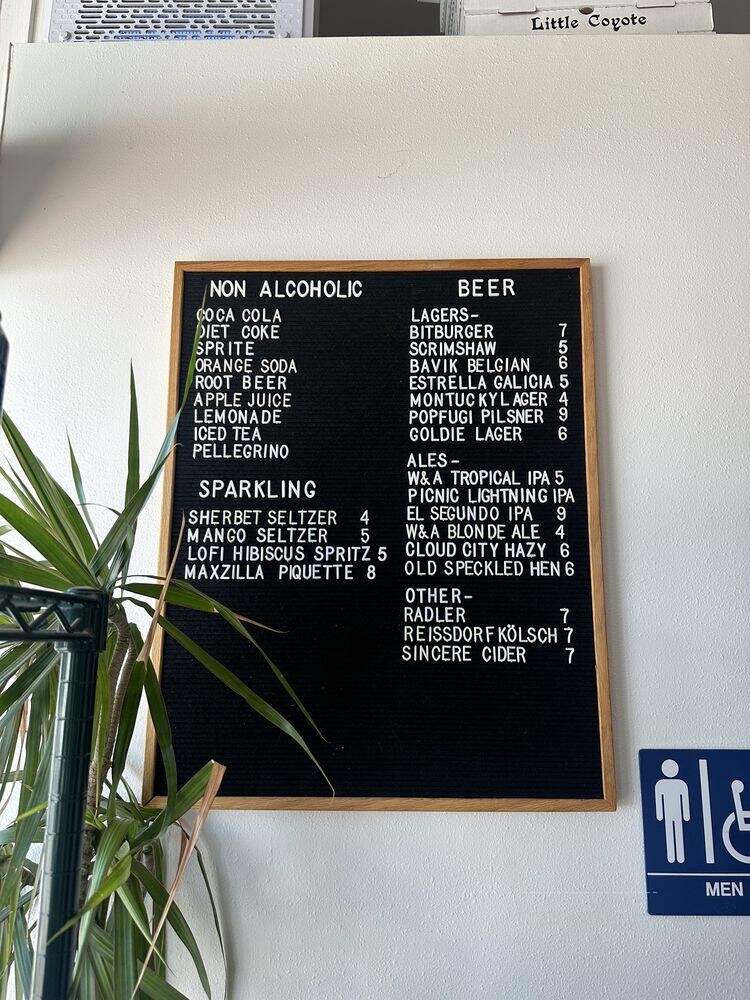 Little Coyote
NON ALCOHOLIC
COCA COLA
DIET COKE
SPRITE
ORANGE SODA
ROOT BEER
APPLE JUICE
LEMONADE
ICED TEA
PELLEGRINO
SPARKLING
SHERBET SELTZER 4
MANGO SELTZER 5
LOFI HIBISCUS SPRITZ 5
MAXZILLA PIQUETTE 8
BEER
LAGERS-
BITBURGER 7
SCRIMSHAW 5
BAVIK BELGIAN 6
ESTRELLA GALICIA 5
MONTUCKY LAGER 4
POPFUGI PILSNER 9
GOLDIE LAGER 6
ALES-
W&A TROPICAL IPA 5
PICNIC LIGHTNING IPA
EL SEGUNDO IPA 9
W&A BLONDE ALE 4
CLOUD CITY HAZY 6
OLD SPECKLED HEN 6
OTHER-
RADLER 7
REISSDORF KÖLSCH 7
SINCERE CIDER 7
MEN